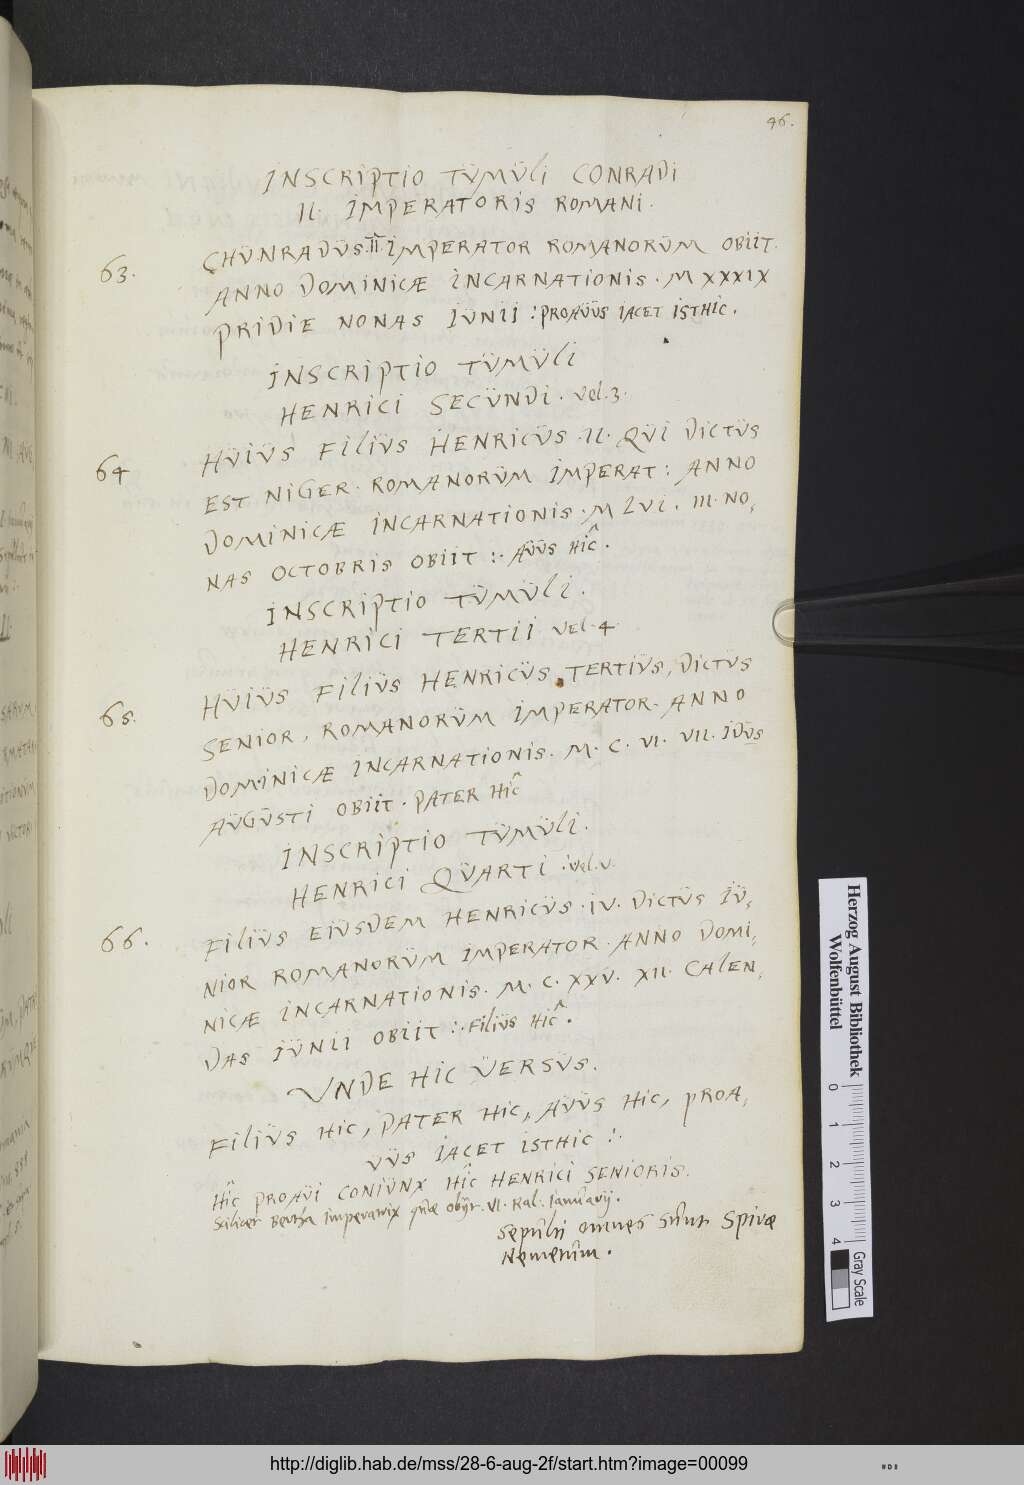 46.
INSCRIPTIO TÜMÜLI CONRADI
II. IMPERATORIS ROMANI.
63. CHÜNRADÜS II IMPERATOR ROMANORÜM OBIIT.
ANNO DOMINICÆ INCARNATIONIS. M XXXIX
PRIDIE NONAS IÜNII : PROAÜÜS IACET ISTHIC.
INSCRIPTIO TÜMÜLI
HENRICI SECÜNDI. vel. 3.
64 HÜIÜS FILIÜS HENRICÜS. II. QÜI DICTÜS
EST NIGER. ROMANORÜM IMPERAT: ANNO
DOMINICÆ INCARNATIONIS. M LVI. III. NO,
NAS OCTOBRIS OBIIT :. AÜÜS HIC.
INSCRIPTIO TÜMÜLI.
HENRICI TERTII vel. 4.
65. HÜIÜS FILIÜS HENRICÜS TERTIÜS, DICTÜS
SENIOR, ROMANORÜM IMPERATOR. ANNO
DOMINICÆ INCARNATIONIS. M. C. VI. VII. IDÜS
AÜGÜSTI OBIIT. PATER HIC
INSCRIPTIO TÜMÜLI.
HENRICI QÜARTI : vel. v.
66. FILIÜS EIÜSDEM HENRICÜS. IV. DICTÜS IÜ,
NIOR ROMANORÜM IMPERATOR. ANNO DOMI,
NICÆ INCARNATIONIS. M. C. XXV. XII. CALEN,
DAS IÜNII OBIIT :. FILIÜS HIC.
VNDE HIC ÜERSÜS.
FILIÜS HIC, PATER HIC, AÜÜS HIC, PROA,
ÜÜS IACET ISTHIC :.
HIC PROAÜI CONIÜNX HIC HENRICI SENIORIS.
Scilicet Bertha Imperatrix quae obijt. VI. Kal. Ianuarij.
Sepulti omnes sunt Spirae
Nemetum.
Herzog August Bibliothek
Wolfenbüttel
0 1 2 3 4
Gray Scale
http://diglib.hab.de/mss/28-6-aug-2f/start.htm?image=00099